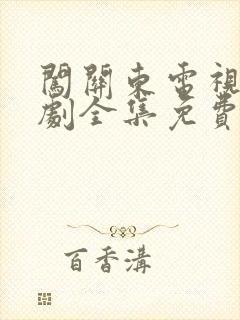 闖關東電視
劇全集免費
百香溝